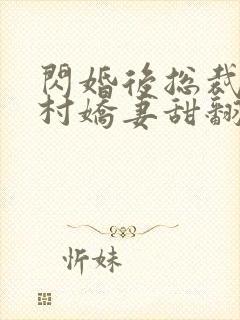 閃婚後總裁
村嬌妻甜翻
忻妹